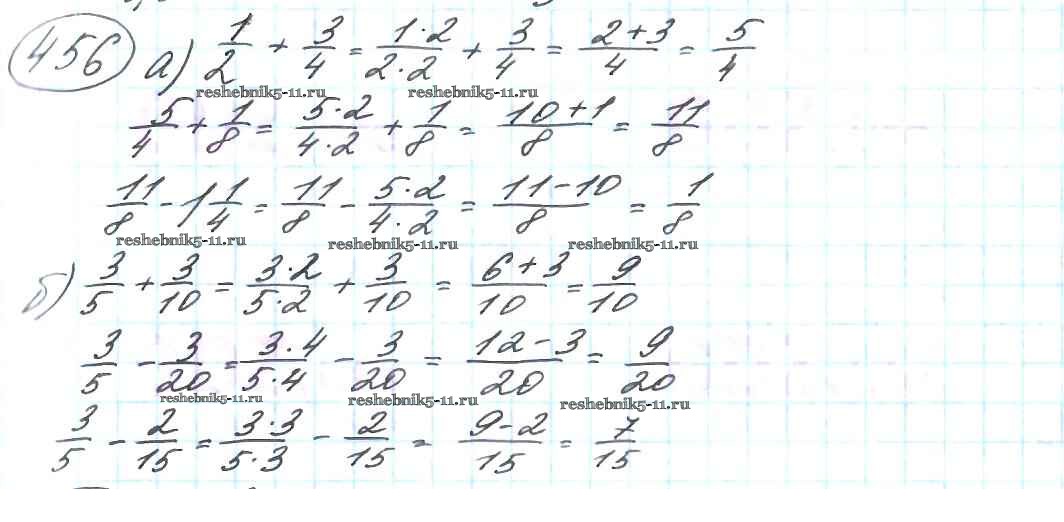 456 а) 1/2 + 3/4 = 1·2/2·2 + 3/4 = 2+3/4 = 5/4
reshebnik5-11.ru reshebnik5-11.ru
5/4 + 1/8 = 5·2/4·2 + 1/8 = 10+1/8 = 11/8
11/8 - 1 1/4 = 11/8 - 5·2/4·2 = 11-10/8 = 1/8
reshebnik5-11.ru reshebnik5-11.ru reshebnik5-11.ru
б) 3/5 + 3/10 = 3·2/5·2 + 3/10 = 6+3/10 = 9/10
3/5 - 3/20 = 3·4/5·4 - 3/20 = 12-3/20 = 9/20
reshebnik5-11.ru reshebnik5-11.ru reshebnik5-11.ru
3/5 - 2/15 = 3·3/5·3 - 2/15 = 9-2/15 = 7/15